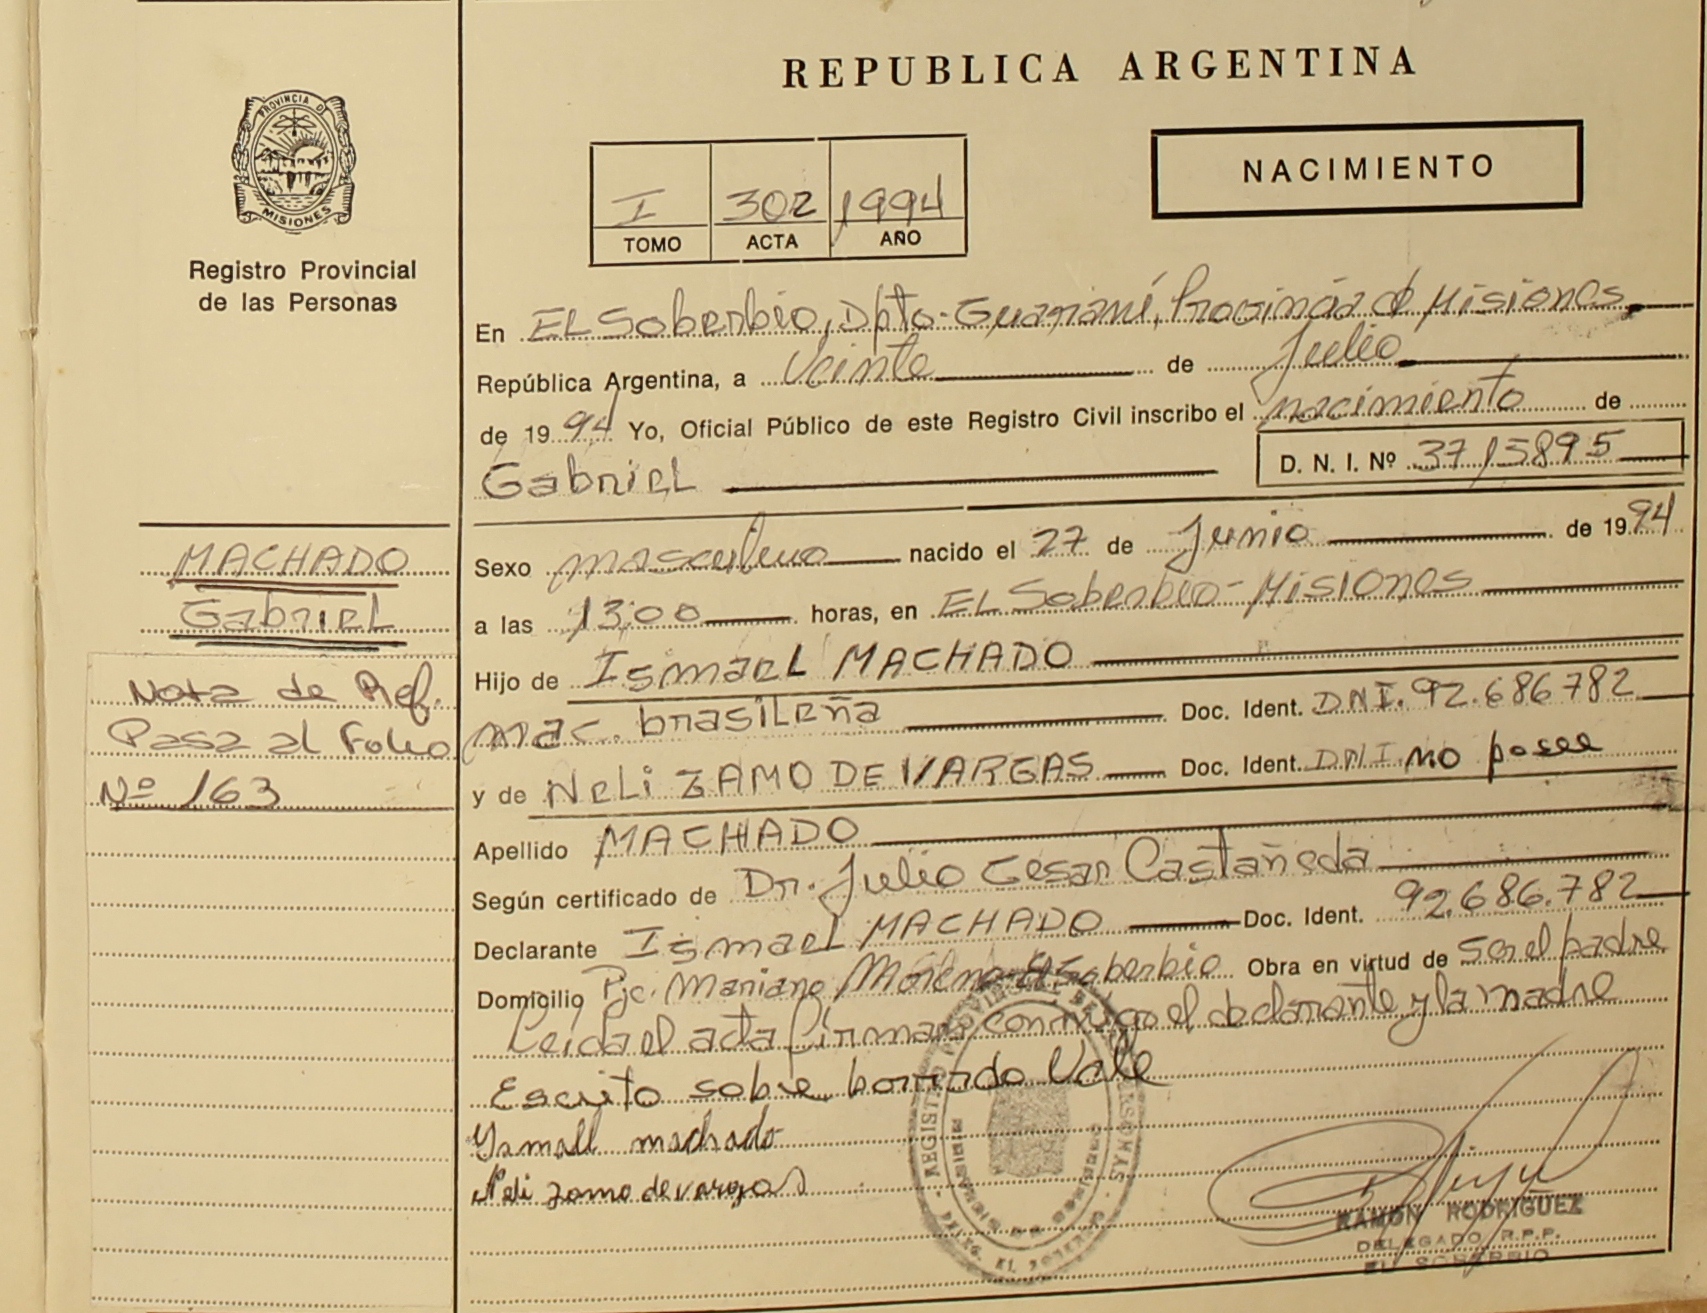 PROVINCIA D
MISIONES
Registro Provincial
de las Personas
MACHADO
Gabriel
Nota de Ref.
Pasa al Folio
Nº 163
REPUBLICA ARGENTINA
NACIMIENTO
I 302 1994
TOMO ACTA AÑO
En El Soberbio, Dpto. Guaraní, Provincia de Misiones
República Argentina, a Veinte de Julio
de 1994 Yo, Oficial Público de este Registro Civil inscribo el nacimiento de
Gabriel D. N. I. Nº 3715895
Sexo masculino nacido el 27 de Junio de 1994
a las 13,00 horas, en El Soberbio - Misiones
Hijo de Ismael MACHADO
nac. brasileña Doc. Ident. DNI. 92.686782
y de Neli ZAMO DE VARGAS Doc. Ident. DNI. no posee
Apellido MACHADO
Según certificado de Dr. Julio Cesar Castañeda
Declarante Ismael MACHADO Doc. Ident. 92.686.782
Domicilio Pje. Mariano Moreno El Soberbio Obra en virtud de ser el padre
Leida el acta firman conmigo el declarante y la madre
Escrito sobre borrado Vale
Ysmall machado
Neli zamo de vargas
RAMON RODRIGUEZ
DELEGADO R.P.P.
EL SOBERBIO